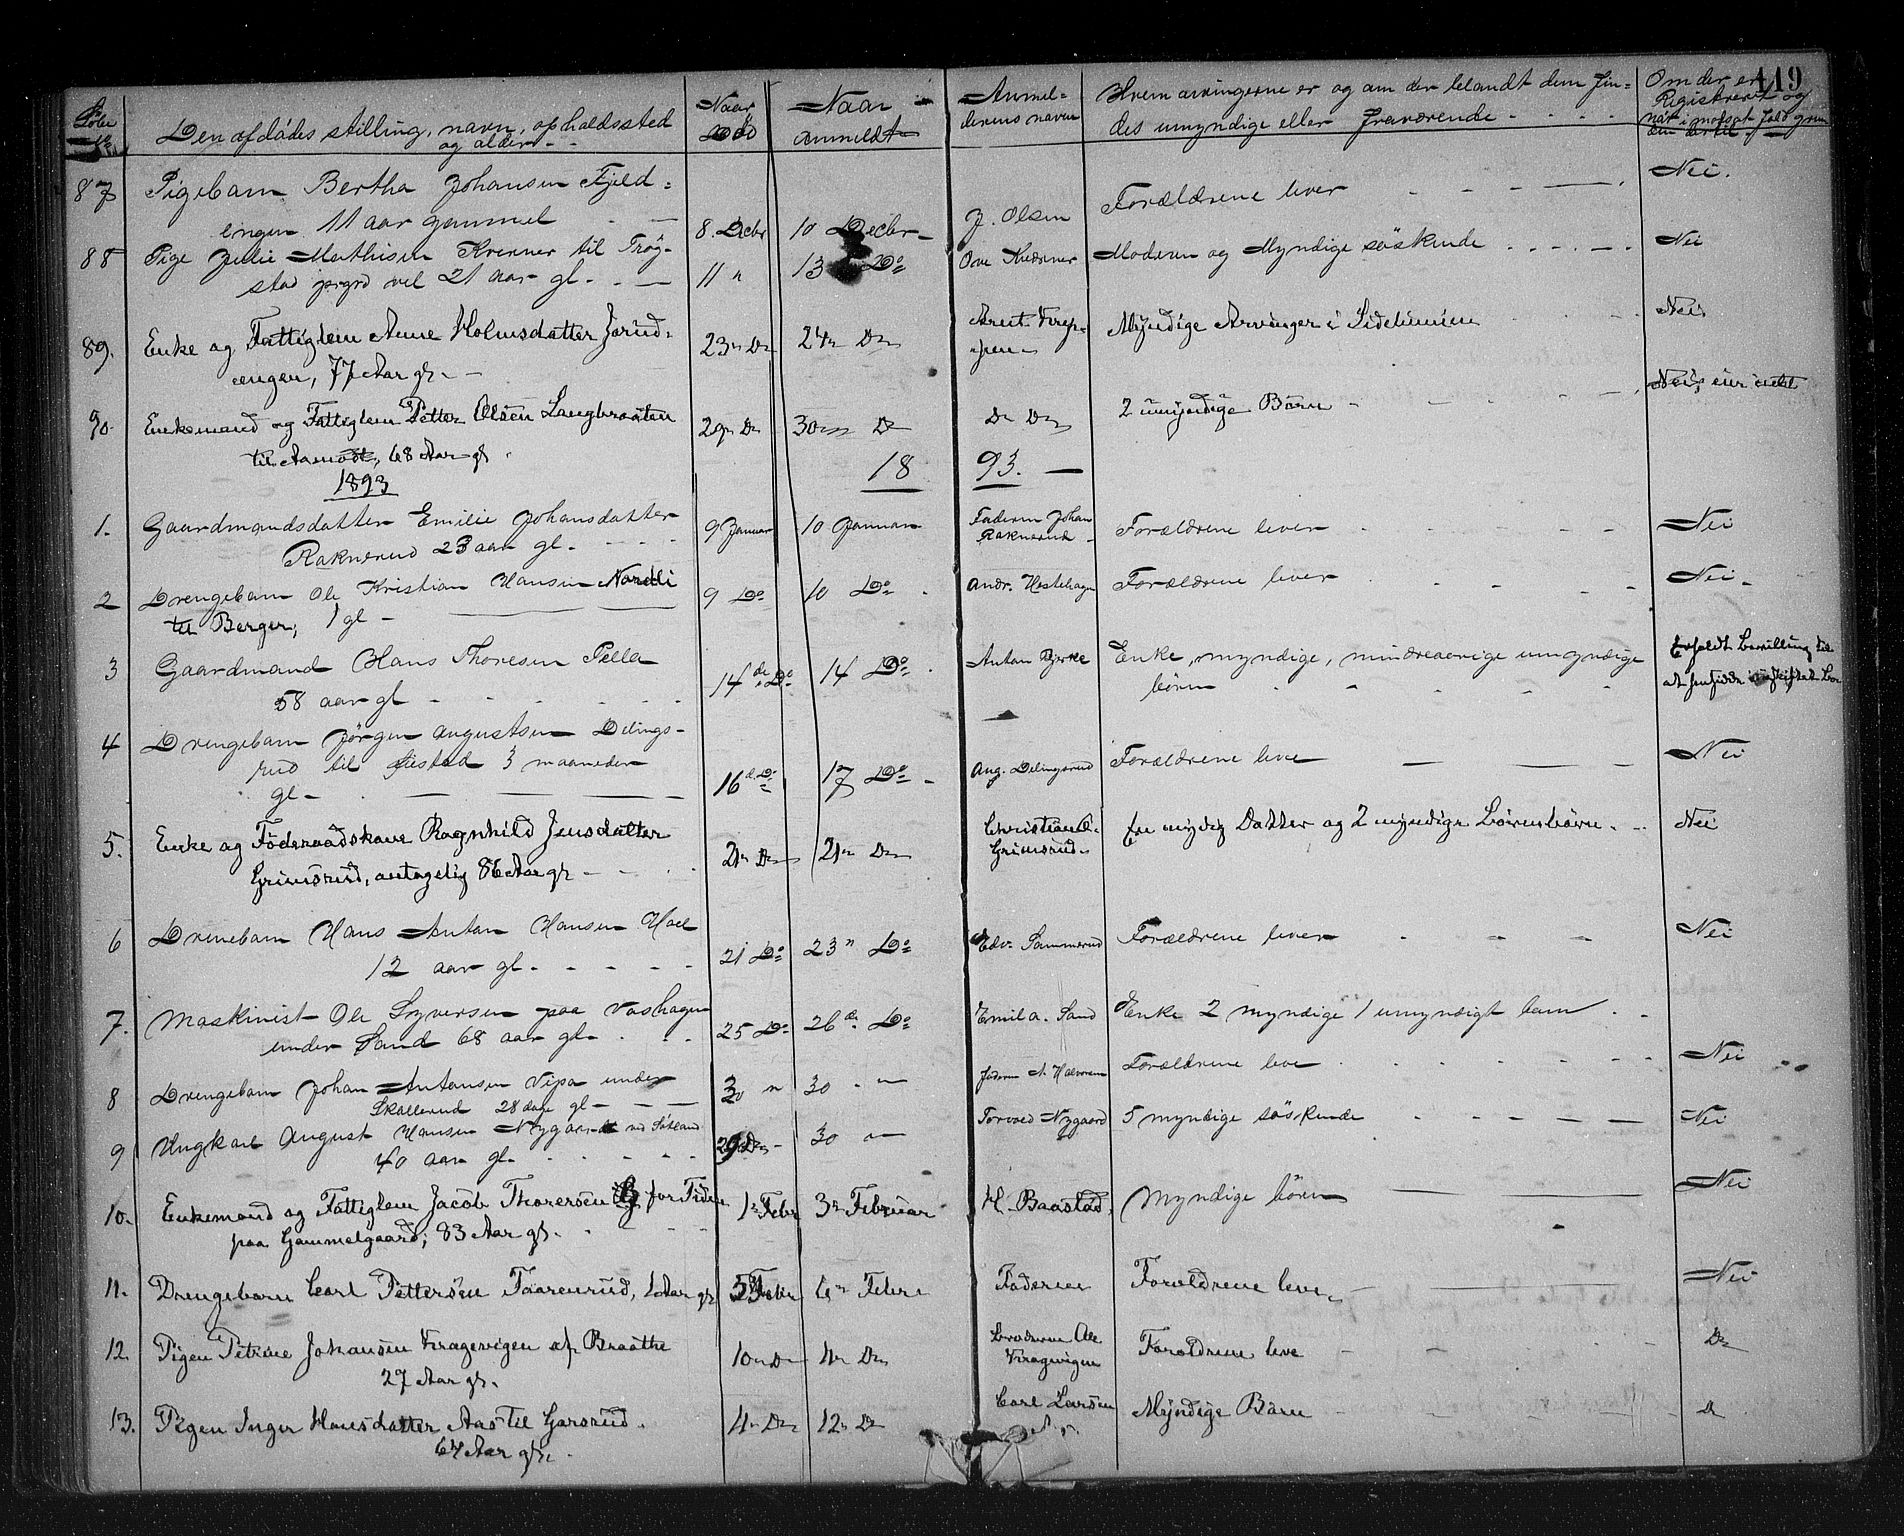 119
Løbe No. Den afdødes stilling, navn, opholdssted og alder - - Naar død Naar anmeldt Anmelderens navn Hvem arvingerne er og om der blandt dem findes umyndige eller fraværende - - - - Om der er Registrert og naar i modsat fald grunden dertil -
87 Pigebarn Bertha Johansen Fjeld-
engen 11 aar gammel - - 8. Decbr 10 Decbr- J. Olsen Forældrene lever - - - - Nei.
88 Pige Julie Mathisen Krerner til Trøg-
stad prgrd vel 21 aar gl. - - 11 " 13 Do Ove Moderen og Myndige søskende - - - - Nei
89. Enke og Fattiglem Anne Holmsdatter Jorud-
engen, 77 Aar gl. - 23de Do 24de Do Arent Myndige Arvinger i Sidelinien - - Nei
90. Enkemand og Fattiglem Petter Olsen Langbraaten
til Aamodt, 68 Aar gl. 29de Do 30 Do Do Do 2 umyndige Børn - - - - Nei, eier intet
1893 18 93. -
1. Gaardmandsdatter Emilie Johansdatter
Raknerud 23 aar gl. - - - 9 Januar 10 Januar Faderen Johan Raknerud - Forældrene lever - - - - Nei
2 Drengebarn Ole Kristian Hansen Nordli
til Berger, 1 gl - 9 Do 10 Do Andr. Hestehagen Forældrene lever - - - Nei-
3 Gaardmand Hans Thoresen Pella
58 aar gl - - - 14de Do 14 Do Anton Bjerke Enke, myndige, mindreaarige umyndige
børn - - - - Erholdt bevilling til
at hensidde i uskiftet Bo
4 Drengebarn Jørgen Augustsen Delings-
rud til 3 maaneder
gl - - - - 16de Do 17 Do - Aug. Delingsrud Forældrene leve - - Nei
5. Enke og Føderaadskone Ragnhild Jensdatter
Grimsrud, antagelig 86 Aar gl - - 21de Do 21de Do Christian O. Grimsrud- En myndig Datter og 2 myndige Børnebørn. - Nei
6 Drenebarn Hans Antan Hansen Hoel
12 aar gl. - - - - 21 Do 23" Do Edv. Sammerud Forældrene lever - - - Nei
7. Maskinist Ole Syversen paa Vashagen
under Sand 68 aar gl. - - - 25 Do 26de Do Emil A. Sand Enke 2 myndige 1 umyndigt barn - -
8 Drengebarn Johan Antonsen Vipa under
Skallerud 28 dage gl - - - 30 " 30 - " Faderen A. Halvorsen Forældrene leve - - - - - Nei
9 Ungkarl August Hansen Nygaard ved
40 aar gl. - - - - 29 Do - 30 " Torvald Nygaard 5 myndige søskende - - - - Nei
10. Enkemand og Fattiglem Jacob Thoresen for Tiden
paa Gammelgaard; 83 Aar gl. - - - 1ste Febr 3de Februar H. Baastad Myndige børn - - Nei
11. Drengebarn Carl Pettersen Taarenrud, Aar gl 5 Febr 6te Febr Faderen Forældrene leve. - - Nei
12. Pigen Petrine Johansen Kragevigen af Braathe
27 Aar gl. 10de Do Do Broderen Ole Kragevigen Forældrene leve - - - Do
13. Pigen Inger Hansdatter Aas til Garsrud.
67 Aar gl. 4de Do 12te Do Carl Larsen Myndige Børn - - - - Do